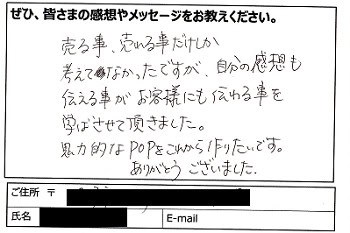 ぜひ、皆さまの感想やメッセージをお教えください。
売る事、売れる事だけしか
考えてなかったですが、自分の感想も
伝える事がお客様にも伝わる事を
学ばさせて頂きました。
魅力的なPOPをこれから作りたいです。
ありがとうございました。
ご住所 〒
氏名
E-mail